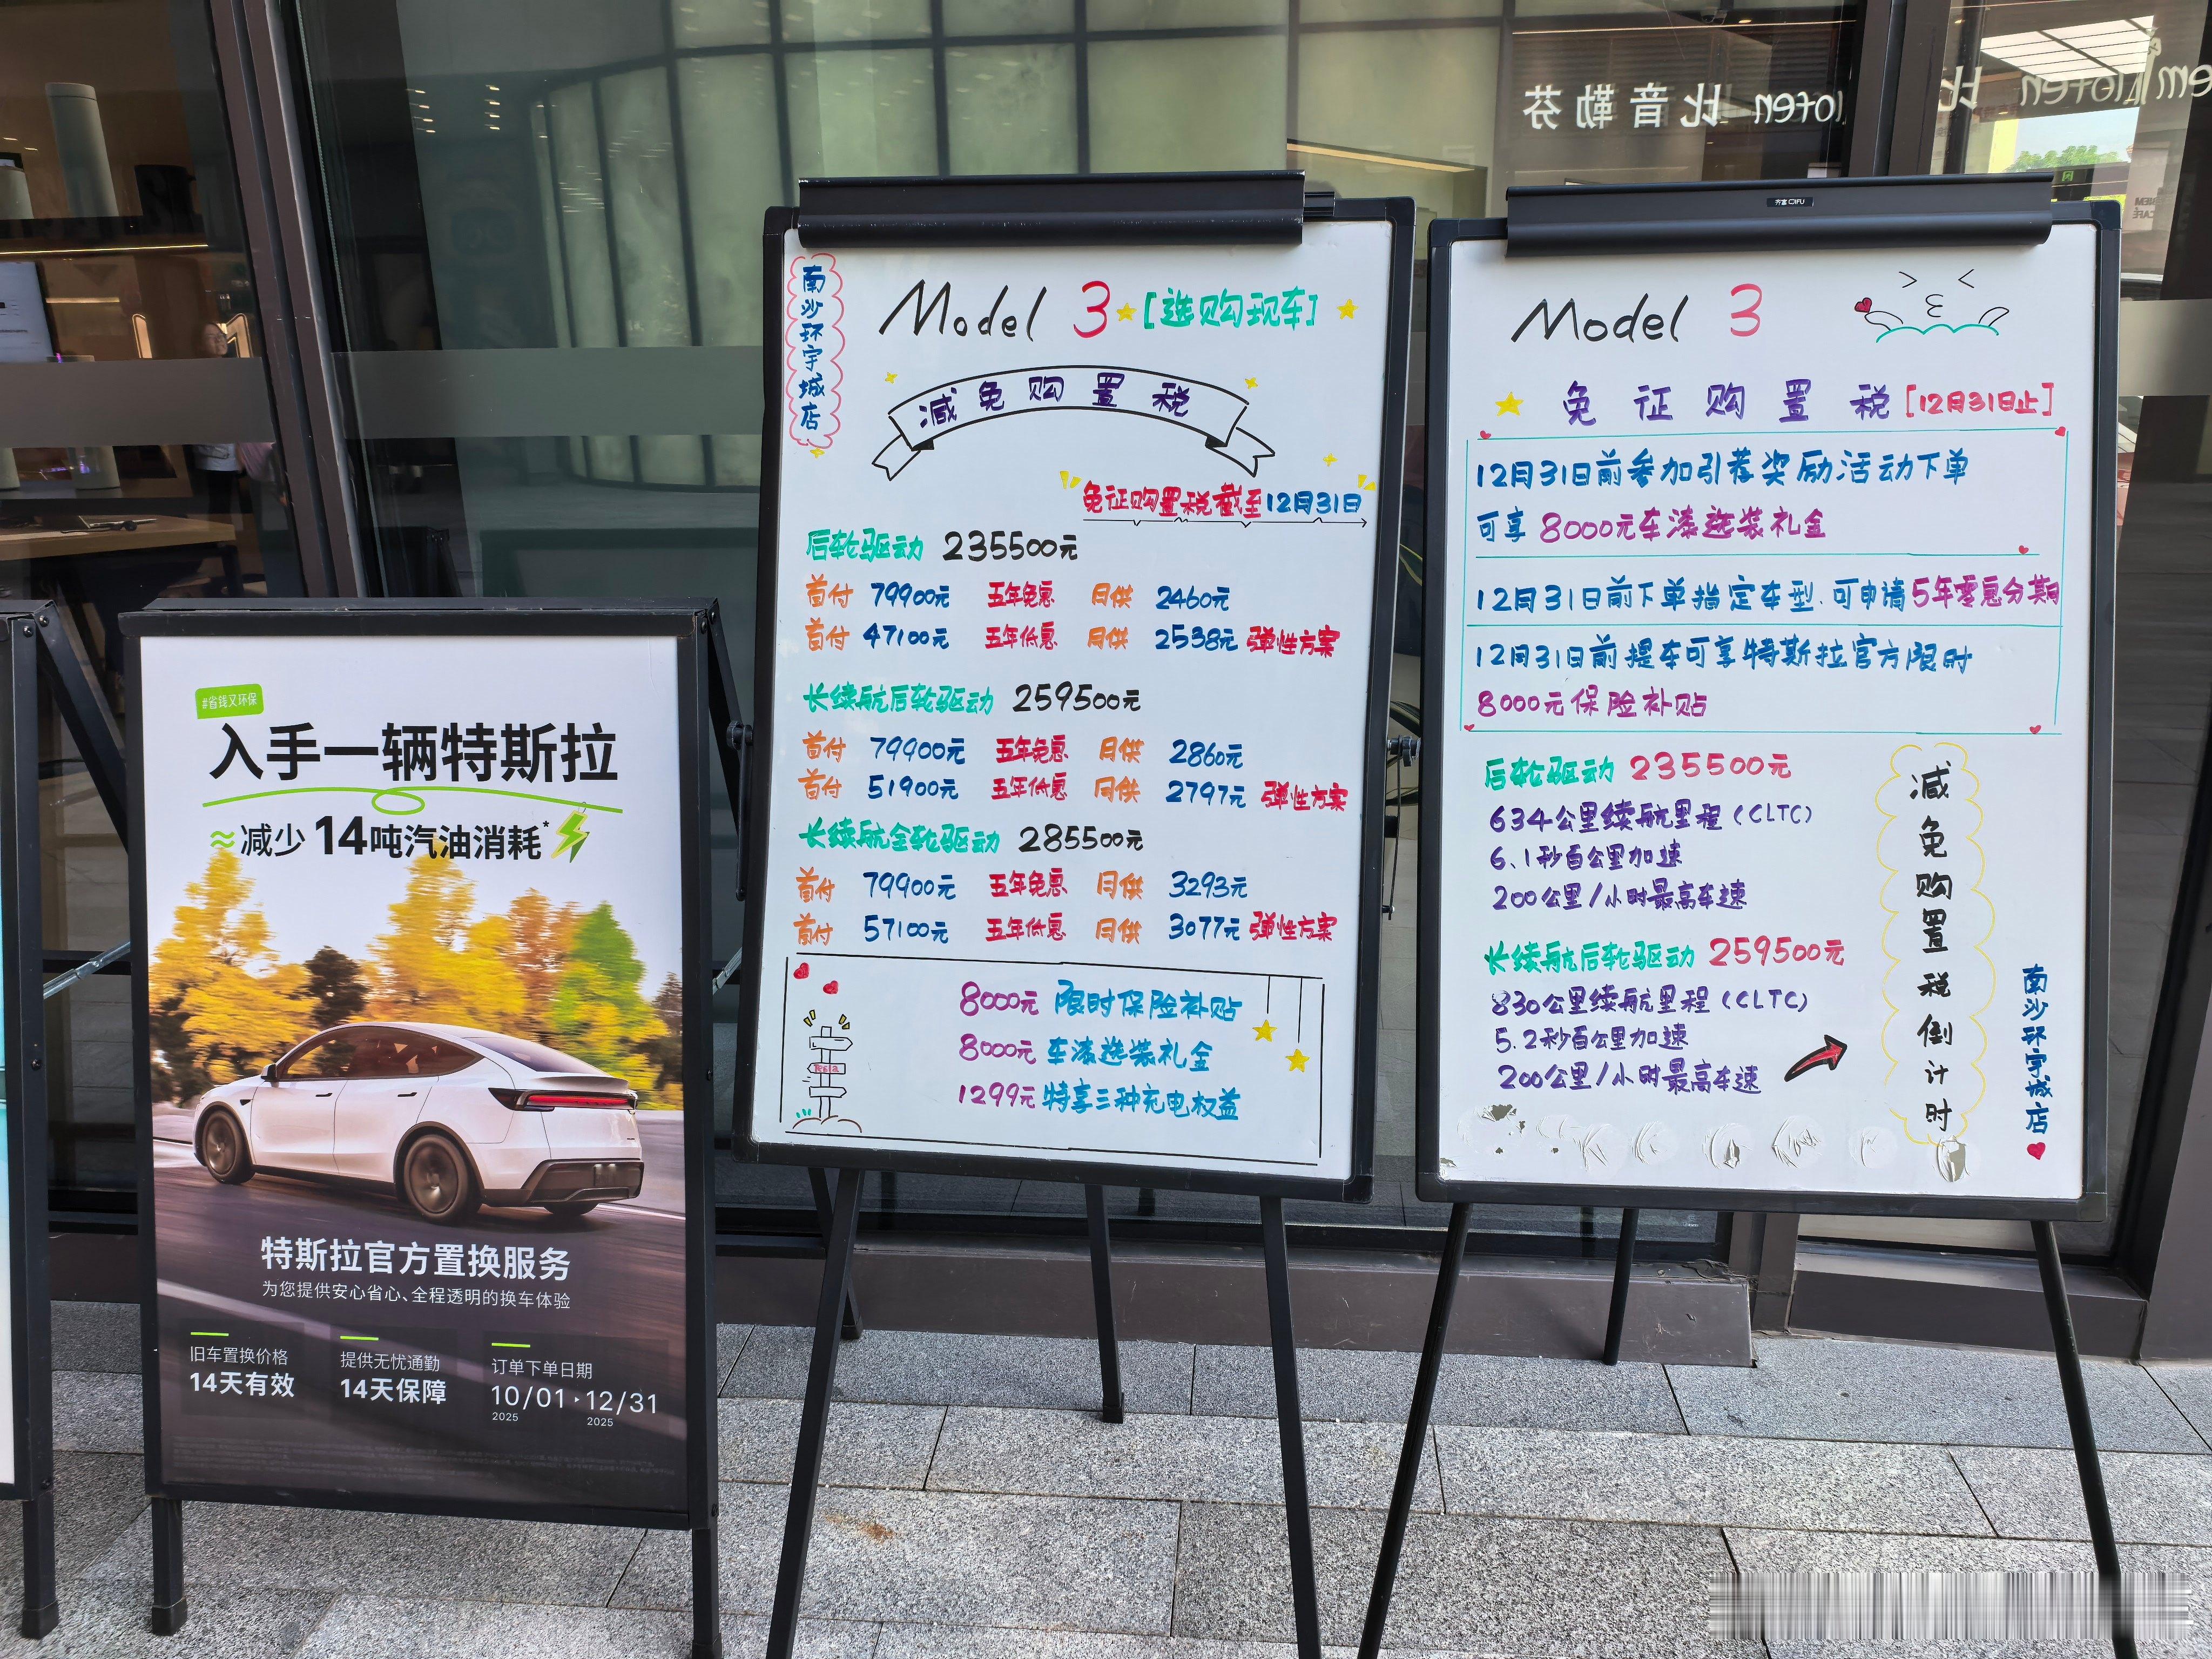 #省钱又环保
入手一辆特斯拉
≈减少14吨汽油消耗*
特斯拉官方置换服务
为您提供安心省心、全程透明的换车体验
旧车置换价格
14天有效
提供无忧通勤
14天保障
订单下单日期
10/01 ▸ 12/31
2025 2025
南沙环宇城店
Model 3 [选购现车]
减免购置税
免征购置税截至12月31日
后轮驱动 235500元
首付 79900元 五年免息 月供 2460元
首付 47100元 五年低息 月供 2538元 弹性方案
长续航后轮驱动 259500元
首付 79900元 五年免息 月供 2860元
首付 51900元 五年低息 月供 2797元 弹性方案
长续航全轮驱动 285500元
首付 79900元 五年免息 月供 3293元
首付 57100元 五年低息 月供 3077元 弹性方案
8000元 限时保险补贴
8000元 车漆选装礼金
1299元 特享三种充电权益
Tesla
齐富 QIFU
Model 3
免征购置税[12月31日止]
12月31日前参加引荐奖励活动下单
可享 8000元车漆选装礼金
12月31日前下单指定车型,可申请5年零息分期
12月31日前提车可享特斯拉官方限时
8000元保险补贴
后轮驱动 235500元
634公里续航里程 (CLTC)
6.1秒百公里加速
200公里/小时最高车速
长续航后轮驱动 259500元
830公里续航里程 (CLTC)
5.2秒百公里加速
200公里/小时最高车速
减免购置税倒计时
南沙环宇城店
比音勒芬